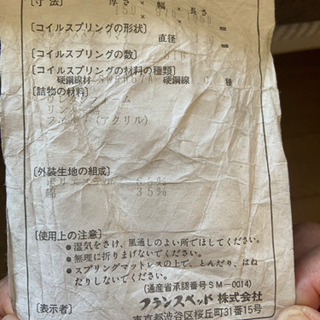 [寸法] 厚さ×幅×長さ
[コイルスプリングの形状]
直径
[コイルスプリングの数]
[コイルスプリングの材料の種類]
硬鋼線材 硬鋼線 種
[詰物の材料]
フェルト(アクリル)
[外装生地の組成]
ポリエステル 65%
綿 35%
[使用上の注意]
●湿気をさけ、風通しのよい所でほしてください。
●無理に折りまげないでください。
●スプリングマットレスの上で、とんだり、はね
だりしないでください。
(通産省承認番号SM-0014)
[表示者] フランスベッド株式会社
東京都渋谷区桜丘町31番15号